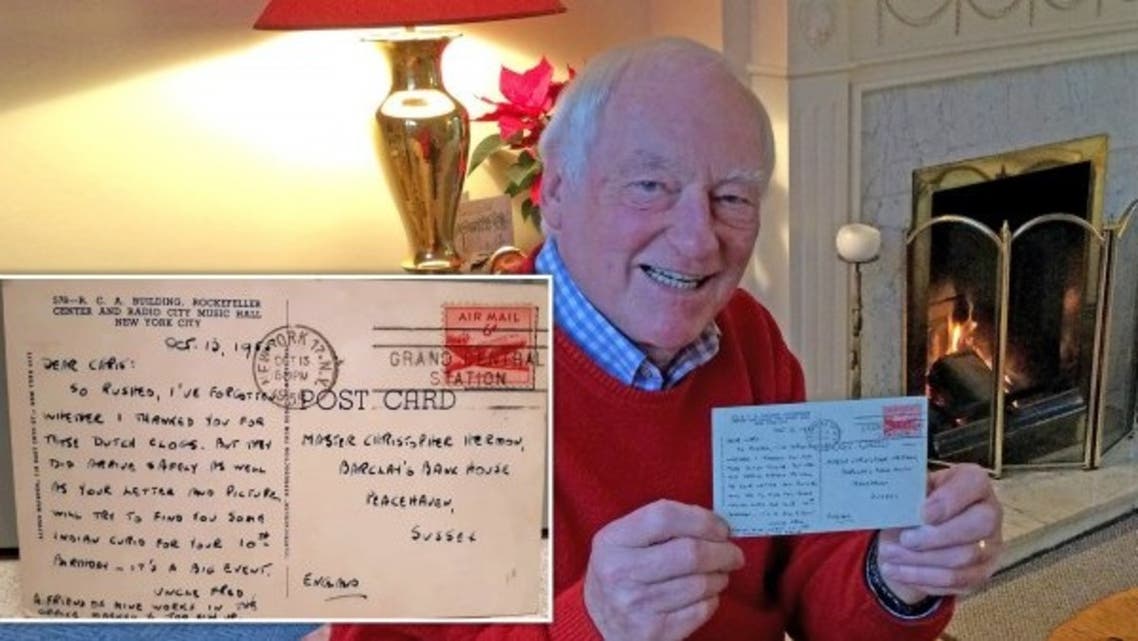 578—R. C. A. BUILDING, ROCKEFELLER
CENTER AND RADIO CITY MUSIC HALL
NEW YORK CITY
OCT. 13, 19
DEAR CHRIS:
SO RUSHED, I'VE FORGOTTEN
WHETHER I THANKED YOU FOR
THOSE DUTCH CLOGS. BUT THEY
DID ARRIVE SAFELY AS WELL
AS YOUR LETTER AND PICTURE.
WILL TRY TO FIND YOU SOME
INDIAN CUPID FOR YOUR 10TH
BIRTHDAY — IT'S A BIG EVENT.
UNCLE FRED
A FRIEND OF MINE WORKS IN THE
NEW YORK 17. N.Y.
OCT 13
PM
AIR MAIL
6¢
GRAND CENTRAL
STATION
POST CARD
MASTER CHRISTOPHER HERMON,
BARCLAY'S BANK HOUSE
PEACEHAVEN,
SUSSEX
ENGLAND